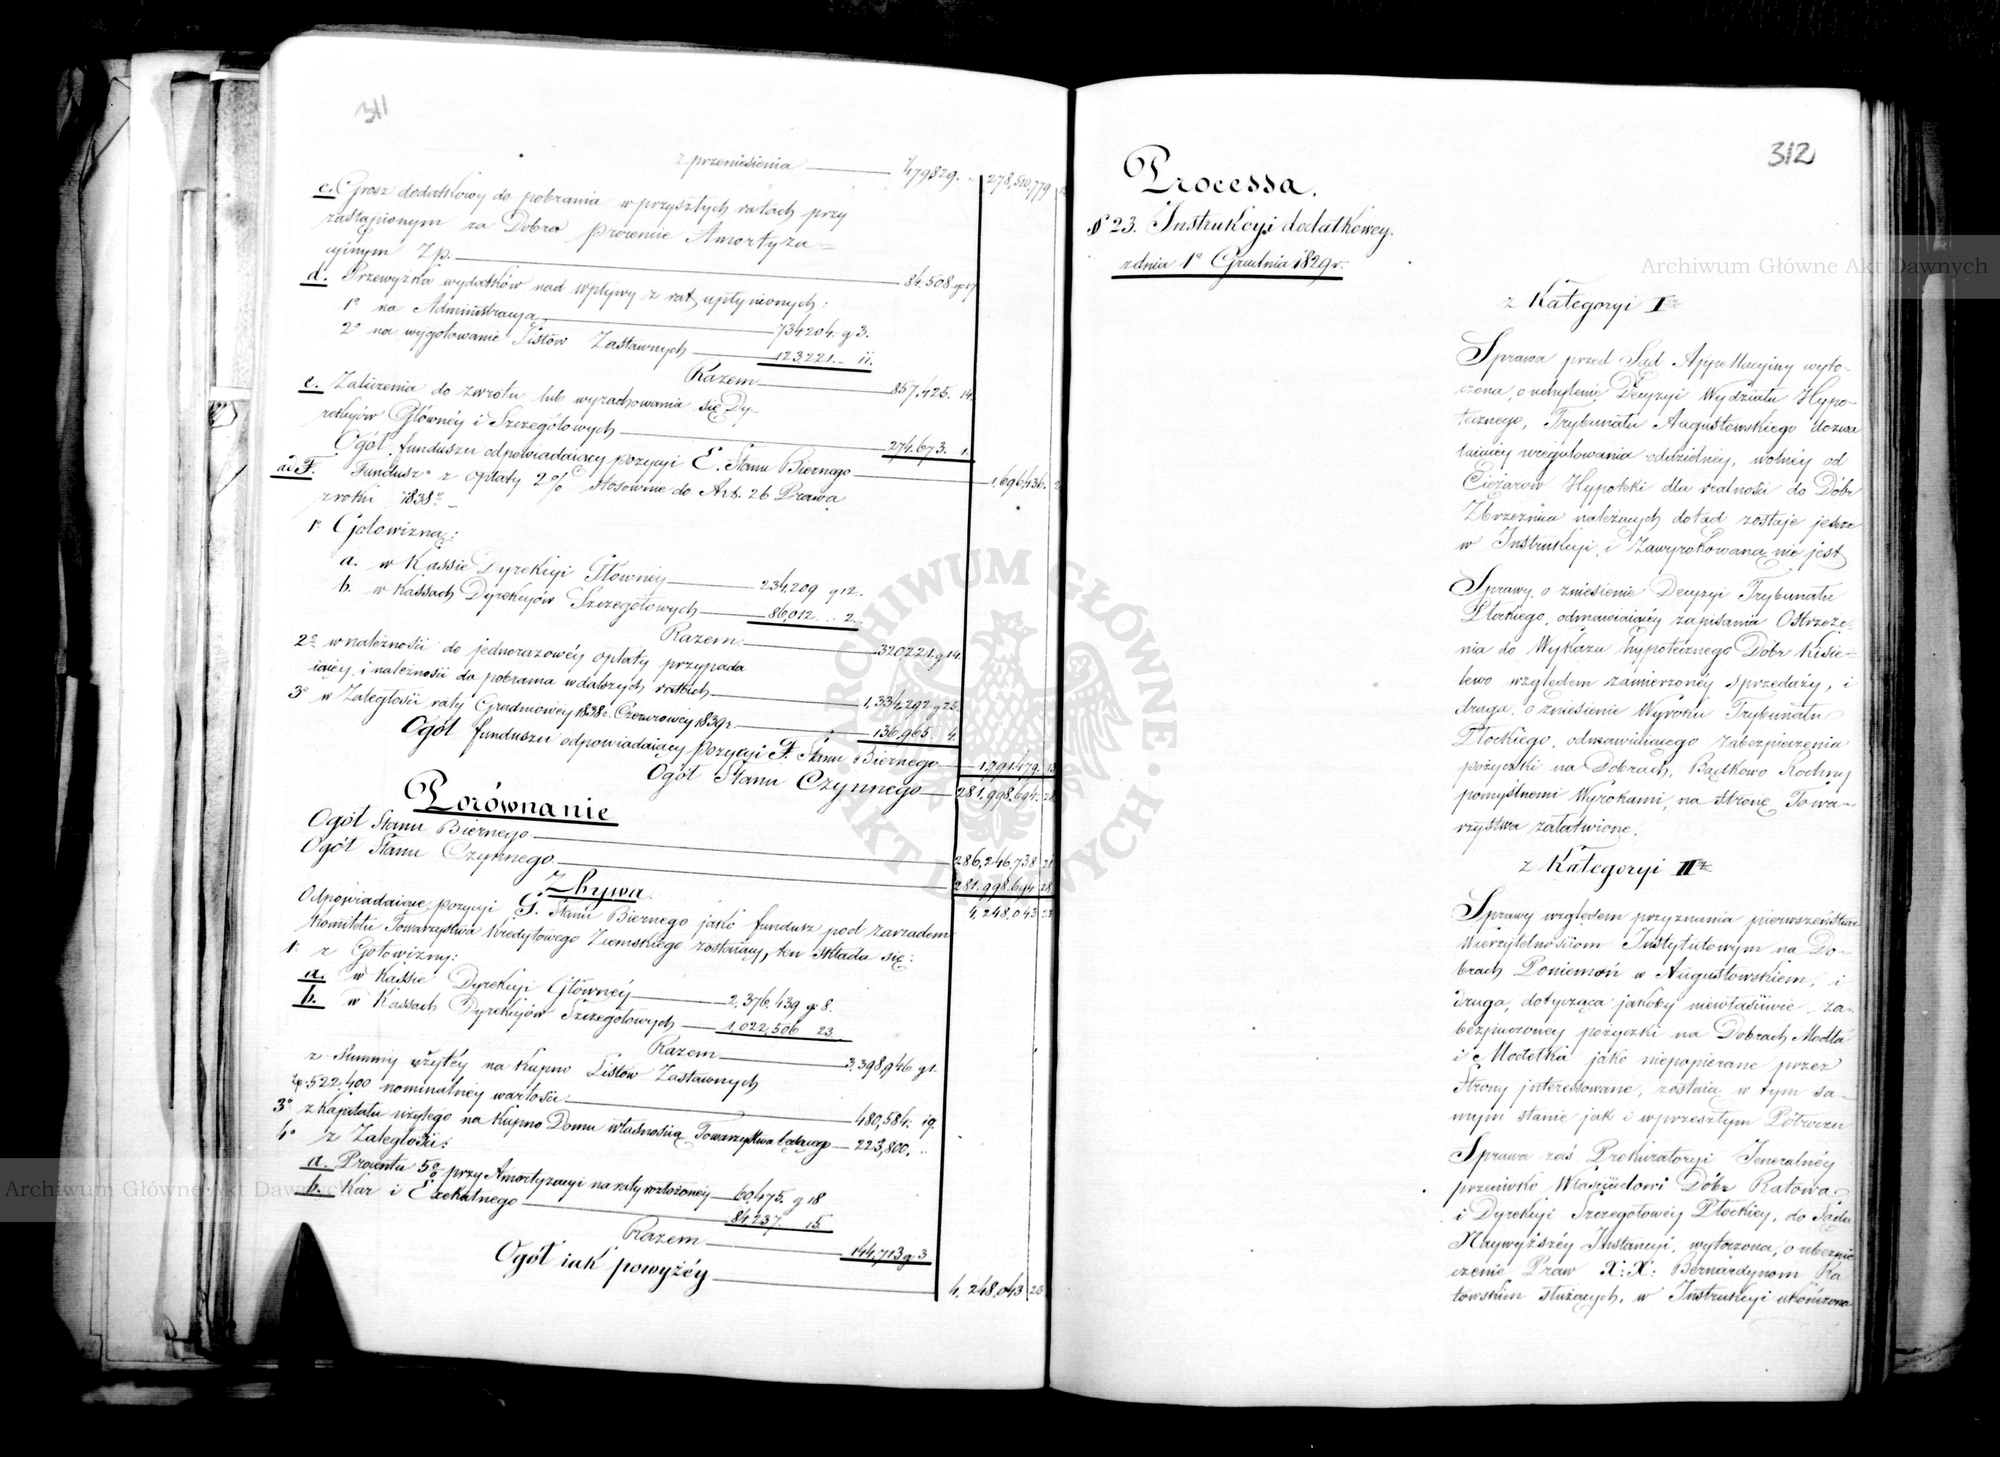 311
z przeniesienia 479829. .. 278,510,779
c. Grosz dodatkowy do pobrania w przyszłych ratach przy
zastąpionym za Dobra procencie Amortyza=
cyjnym Zp. 84,508 g 17
d. Przewyżka wydatków nad wpływy z rat upłynionych:
1º na Administracyą 734204. g 3.
2º na wygotowanie Listów Zastawnych 123221. 11.
Razem 857,425. 14.
e. Zaliczenia do zwrotu lub wyrachowania się Dy-
rekcyów Głównéy i Szczegółowych 274,673. 1.
Ogół funduszu odpowiadaiący pozycyi E. Stanu Biernego 1,696,436. 2
ad F. Fundusz z opłaty 2% stosownie do Art. 26 Prawa
z roku 1838º
1º Gotowizną:
a. w Kassie Dyrekcyi Głównéy 234,209 g 12.
b. w Kassach Dyrekcyów Szczegółowych 86,012 .. 2.
Razem 320221. g 14.
2º w należności do jednorazowéy opłaty przypada
iącéy i należności do pobrania w dalszych ratach 1,334,292. g 25.
3º w Zaległości raty Grudniowéy 1838 r. Czerwcowéy 1839 r 136,965 4.
Ogół funduszu odpowiadaiący pozycyi F. Stanu Biernego 1,791,479. 13
Ogół Stanu Czynnego 281,998,694. 28
Porównanie
Ogół Stanu Biernego 286,246,738 21
Ogół Stanu Czynnego 281,998,694 28
Zbywa. 4,248,043 23
Odpowiadaiące pozycyi G. Stanu Biernego jako fundusz pod zarządem
Komitetu Towarzystwa Kredytowego Ziemskiego zostaiący, ten składa się:
1. z Gotowizny:
a. w Kassie Dyrekcyi Głównéy 2,376,439 g 8.
b. w Kassach Dyrekcyów Szczegółowych 1,022,506 23
Razem 3,398,946 g 1.
z Summy użytéy na kupno Listów Zastawnych
Zp. 522,400 nominalnéy wartości 480,584. 19.
3º z Kapitału użytego na kupno Domu własnością Towarzystwa będącego 223,800. ..
4º z Zaległości:
a. Procentu 5% przy Amortyzacyi na raty rozłożonéy 60,475. g 18
b. Kar i Exekutnego 84237. 15.
Razem 144,713 g. 3
Ogół iak powyżéy 4,248,043 23
312
Processa.
§ 23. Instrukcyi dodatkowey.
z dnia 1º Grudnia 1829 r.
z Kategoryi I
Sprawa przed Sąd Appellacyiny wyto-
czona, o uchylenie Decyzyi Wydziału Hypo-
tecznego, Trybunału Augustowskiego dozwa
laiącéy uregulowania oddzielnéy, wolnéy od
Ciężarów Hypoteki dla realności do Dóbr
Zbrzeźnia należących dotąd zostaje jeszcze
w Instrukcyi, i Zawyrokowaną nie jest
Sprawy, o zniesienie Decyzyi Trybunału
Płockiego, odmawiaiącéy zapisania Ostrzeże-
nia do Wykazu hypotecznego Dóbr Kisie-
lewo względem zamierzonéy sprzedaży, i
druga, o zniesienie Wyroku Trybunału
Płockiego, odmawiaiącego zabezpieczenia
pożyczki na Dobrach, Bądkowo Rochny
pomyślnemi Wyrokami, na stronę Towa-
rzystwa załatwione.
z Kategoryi II
Sprawy względem przyznania pierwszeństwa
Wierzytelnościom Instytutowym na Do-
brach Poniemoń w Augustowskiem, i
druga, dotycząca jakoby niewłaściwie za-
bezpieczonéy pożyczki na Dobrach Modła
i Modełka jako niepopierane przez
Strony interessowane, zostaią w tym sa-
mym stanie jak i w przeszłym Półroczu
Sprawa zaś Prokuratoryi Jeneralnéy
przeciwko Właścicielowi Dóbr Ratowa
i Dyrekcyi Szczegółowéy Płockiéy, do Sądu
Naywyższéy Instancyi, wytoczona, o ubezpie
czenie Praw X: X: Bernardynom Ra
towskim służących, w Instrukcyi ukończona
Archiwum Główne Akt Dawnych
Archiwum Główne Akt Dawnych
ARCHIWUM GŁÓWNE AKT DAWNYCH